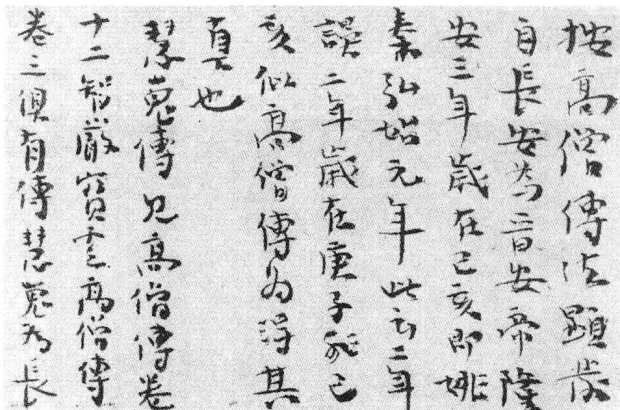 按高僧傳法顯發
自長安為晉安帝隆
安三年歲在己亥即姚
秦弘始元年此云二年
誤二年歲在庚子非己
亥似高僧傳為得其
真也
慧嵬傳見高僧傳卷
十二智嚴寶雲高僧傳
卷三俱有傳慧嵬為長